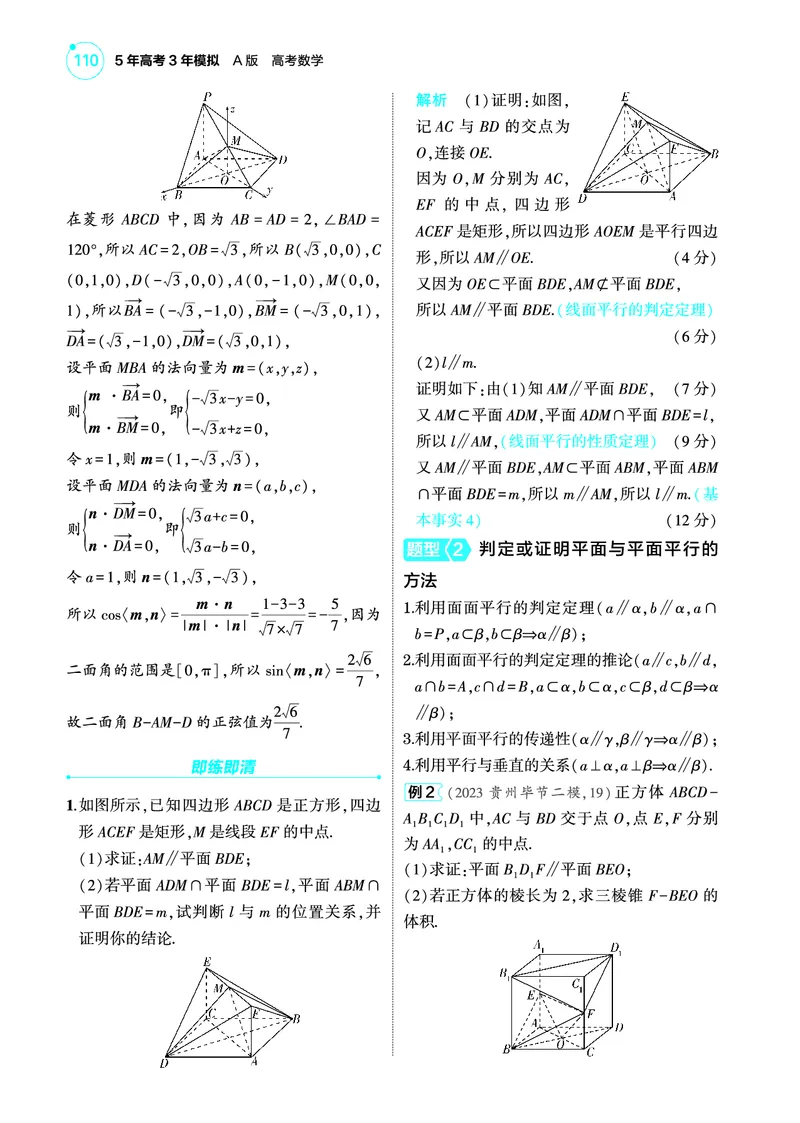 110 5年高考3年模拟 A版 高考数学
P
z
M
A
D
O
x B C y
在菱形 ABCD 中,因为 AB=AD=2,∠BAD=
120°,所以AC=2,OB=√3,所以 B(√3,0,0),C
(0,1,0),D(-√3,0,0),A(0,-1,0),M(0,0,
1),所以BA=(-√3,-1,0),BM=(-√3,0,1),
DA=(√3,-1,0),DM=(√3,0,1),
设平面 MBA 的法向量为 m=(x,y,z),
则{m·BA=0, 即{-√3x-y=0,
m·BM=0, -√3x+z=0,
令 x=1,则 m=(1,-√3,√3),
设平面 MDA 的法向量为 n=(a,b,c),
则{n·DM=0, 即{√3a+c=0,
n·DA=0, √3a-b=0,
令 a=1,则 n=(1,√3,-√3),
所以 cos⟨m,n⟩=m·n/(|m|·|n|)=(1-3-3)/(√7×√7)=-5/7,因为
二面角的范围是[0,π],所以 sin⟨m,n⟩=2√6/7,
故二面角 B-AM-D 的正弦值为2√6/7.
即练即清
1.如图所示,已知四边形 ABCD 是正方形,四边
形 ACEF 是矩形,M 是线段 EF 的中点.
(1)求证:AM∥平面 BDE;
(2)若平面 ADM∩平面 BDE=l,平面 ABM∩
平面 BDE=m,试判断 l 与 m 的位置关系,并
证明你的结论.
E
M
C F
B
D A
解析 (1)证明:如图,
记 AC 与 BD 的交点为
O,连接 OE.
因为 O,M 分别为 AC,
EF 的中点,四边形
E
M
C F B
O
D A
ACEF 是矩形,所以四边形 AOEM 是平行四边
形,所以 AM∥OE. (4分)
又因为 OE⊂平面 BDE,AM⊄平面 BDE,
所以 AM∥平面 BDE.(线面平行的判定定理)
(6分)
(2)l∥m.
证明如下:由(1)知 AM∥平面 BDE, (7分)
又 AM⊂平面 ADM,平面 ADM∩平面 BDE=l,
所以 l∥AM,(线面平行的性质定理) (9分)
又 AM∥平面 BDE,AM⊂平面 ABM,平面 ABM
∩平面 BDE=m,所以 m∥AM,所以 l∥m.(基
本事实4) (12分)
题型 2 判定或证明平面与平面平行的
方法
1.利用面面平行的判定定理(a∥α,b∥α,a∩
b=P,a⊂β,b⊂β⇒α∥β);
2.利用面面平行的判定定理的推论(a∥c,b∥d,
a∩b=A,c∩d=B,a⊂α,b⊂α,c⊂β,d⊂β⇒α
∥β);
3.利用平面平行的传递性(α∥γ,β∥γ⇒α∥β);
4.利用平行与垂直的关系(a⊥α,a⊥β⇒α∥β).
例2 (2023 贵州毕节二模,19)正方体 ABCD-
A₁B₁C₁D₁ 中,AC 与 BD 交于点 O,点 E,F 分别
为 AA₁,CC₁ 的中点.
(1)求证:平面 B₁D₁F∥平面 BEO;
(2)若正方体的棱长为 2,求三棱锥 F-BEO 的
体积.
A₁
D₁
B₁
C₁
E
F
A
D
O
B
C